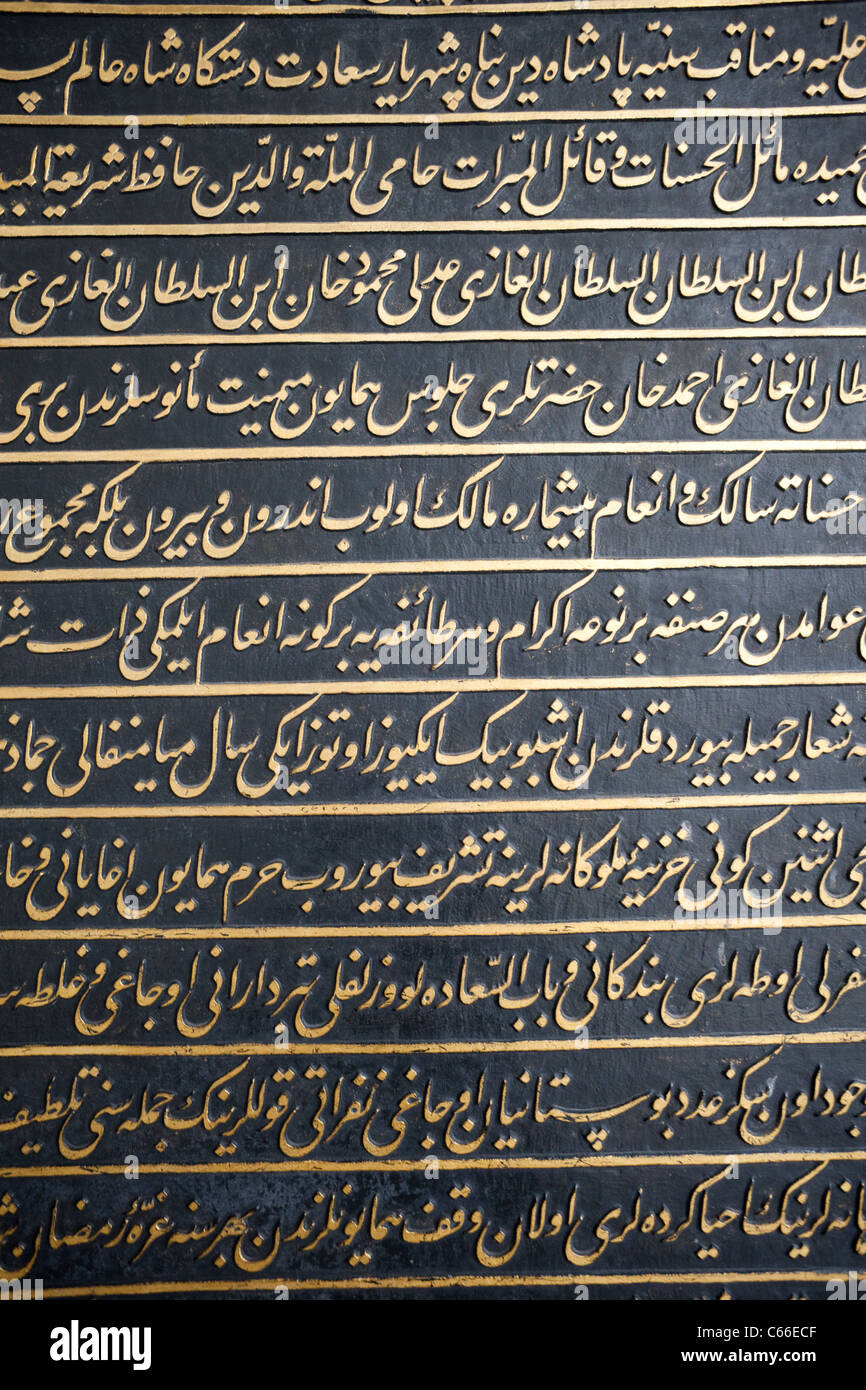 علیّه و مناقب سنیّه پادشاه دین پناه شهریار سعادت دستکاه شاه عالم پـ
حمیده مائل الحسنات و قائل المبرات حامی الملّة والدّین حافظ شریعة المبیـ
ـطان ابن السلطان السلطان الغازی عدلی محمود خان ابن السلطان الغازی عبـ
ـطان الغازی احمد خان حضرتلری جلوس همایون میمنت مأنوسلرندن بری
حسناته سالک و انعام بیشماره مالک اولوب اندرون و بیرون بلکه مجموع
عوامدن هر صنفه بر نوعه اکرام و هر طائفه‌یه بر کونه انعام ایلمکی ذات شر
شعار جمیله بیوردقلرندن اشبو بیک ایکیوز اوتوز ایکی سال میامنفالی جماذ
ـجی اثنین کونی خزینهٔ ملوکانه‌لرینه تشریف بیوروب حرم همایون اغایانی و خا
نفرلی اوطه‌لری بندکانی و باب السّعاده لووز نفلی تبردارانی اوجاغی و غلطه سـ
جود اون سکز عدد بوستانیان اوجاغی نفراتی قوللرینک جمله سنی تلطیف
ـانه‌لرینک احیا کرده‌لری اولان وقف همایونلرندن بهر سنه غرّهٔ رمضان
alamy
Image ID: C66ECF
www.alamy.com